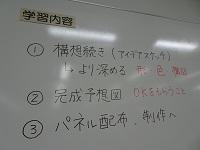 学習内容
① 構想続き (アイデアスケッチ)
↳より深める 形・色
② 完成予想図 OKをもらうこと
③ パネル配布、制作へ